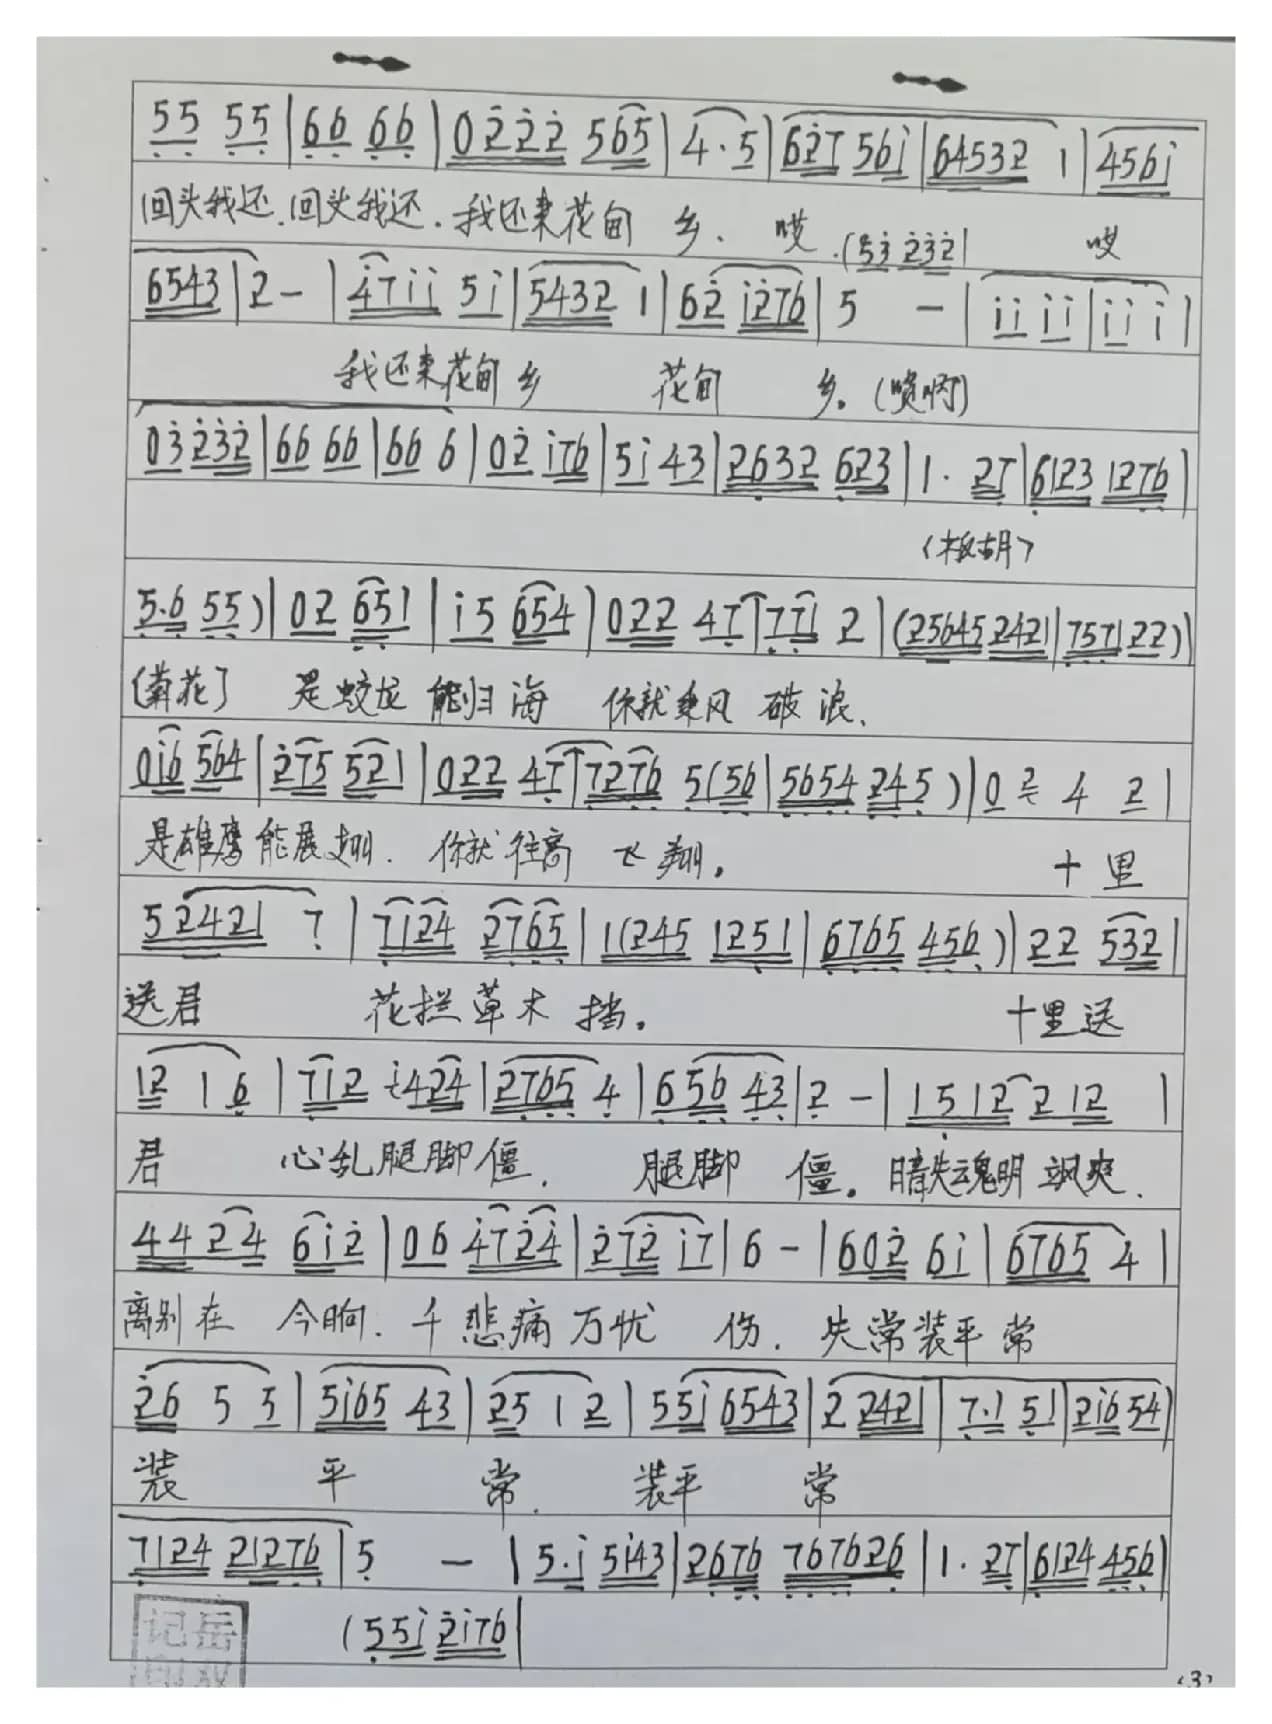 55 55 | 66 66 | 0222 565 | 4·5 | 627 56i | 64532 1 | 456i
回头我还.回头我还.我还来花甸 乡. 哎.(53 232| 哎
6543 | 2 - | 47ii 5i | 5432 1 | 62 i276 | 5 - | ii ii | ii i |
我还来花甸乡 花甸 乡。(唢呐)
03232 | 66 66 | 66 6 | 02 i76 | 5i 43 | 2632 623 | 1· 27 | 6123 1276 |
〈板胡〉
5·6 55) | 02 651 | i5 654 | 022 47 | 771 2 | (25645 2421 | 7571 22) |
(菊花] 是蛟龙能归海 你就乘风破浪.
0i6 564 | 275 521 | 022 47 | 7276 5(56 | 5654 245) | 0 2 4 2 |
是雄鹰能展翅. 你就往高飞翔。 十里
52421 7 | 7124 2765 | 1(245 1251 | 6765 456) | 22 532 |
送君 花拦草木挡。 十里送
12 1 6 | 712 i424 | 2765 4 | 656 43 | 2 - | 1512 212 |
君 心乱腿脚僵. 腿脚 僵。暗失魂明飒爽.
44 24 6i2 | 06 4724 | 272 i7 | 6 - | 602 6i | 6765 4 |
离别在 今晌.千悲痛万忧 伤.失常装平常
26 5 5 | 5i65 43 | 25 1 2 | 55i 6543 | 2 2421 | 7·1 51 | 2i6 54 |
装 平 常. 装平 常
7124 21276 | 5 - | 5·i 5i43 | 2676 767626 | 1· 27 | 6124 456 |
(55i 2i76 |
记岳
印
(3)